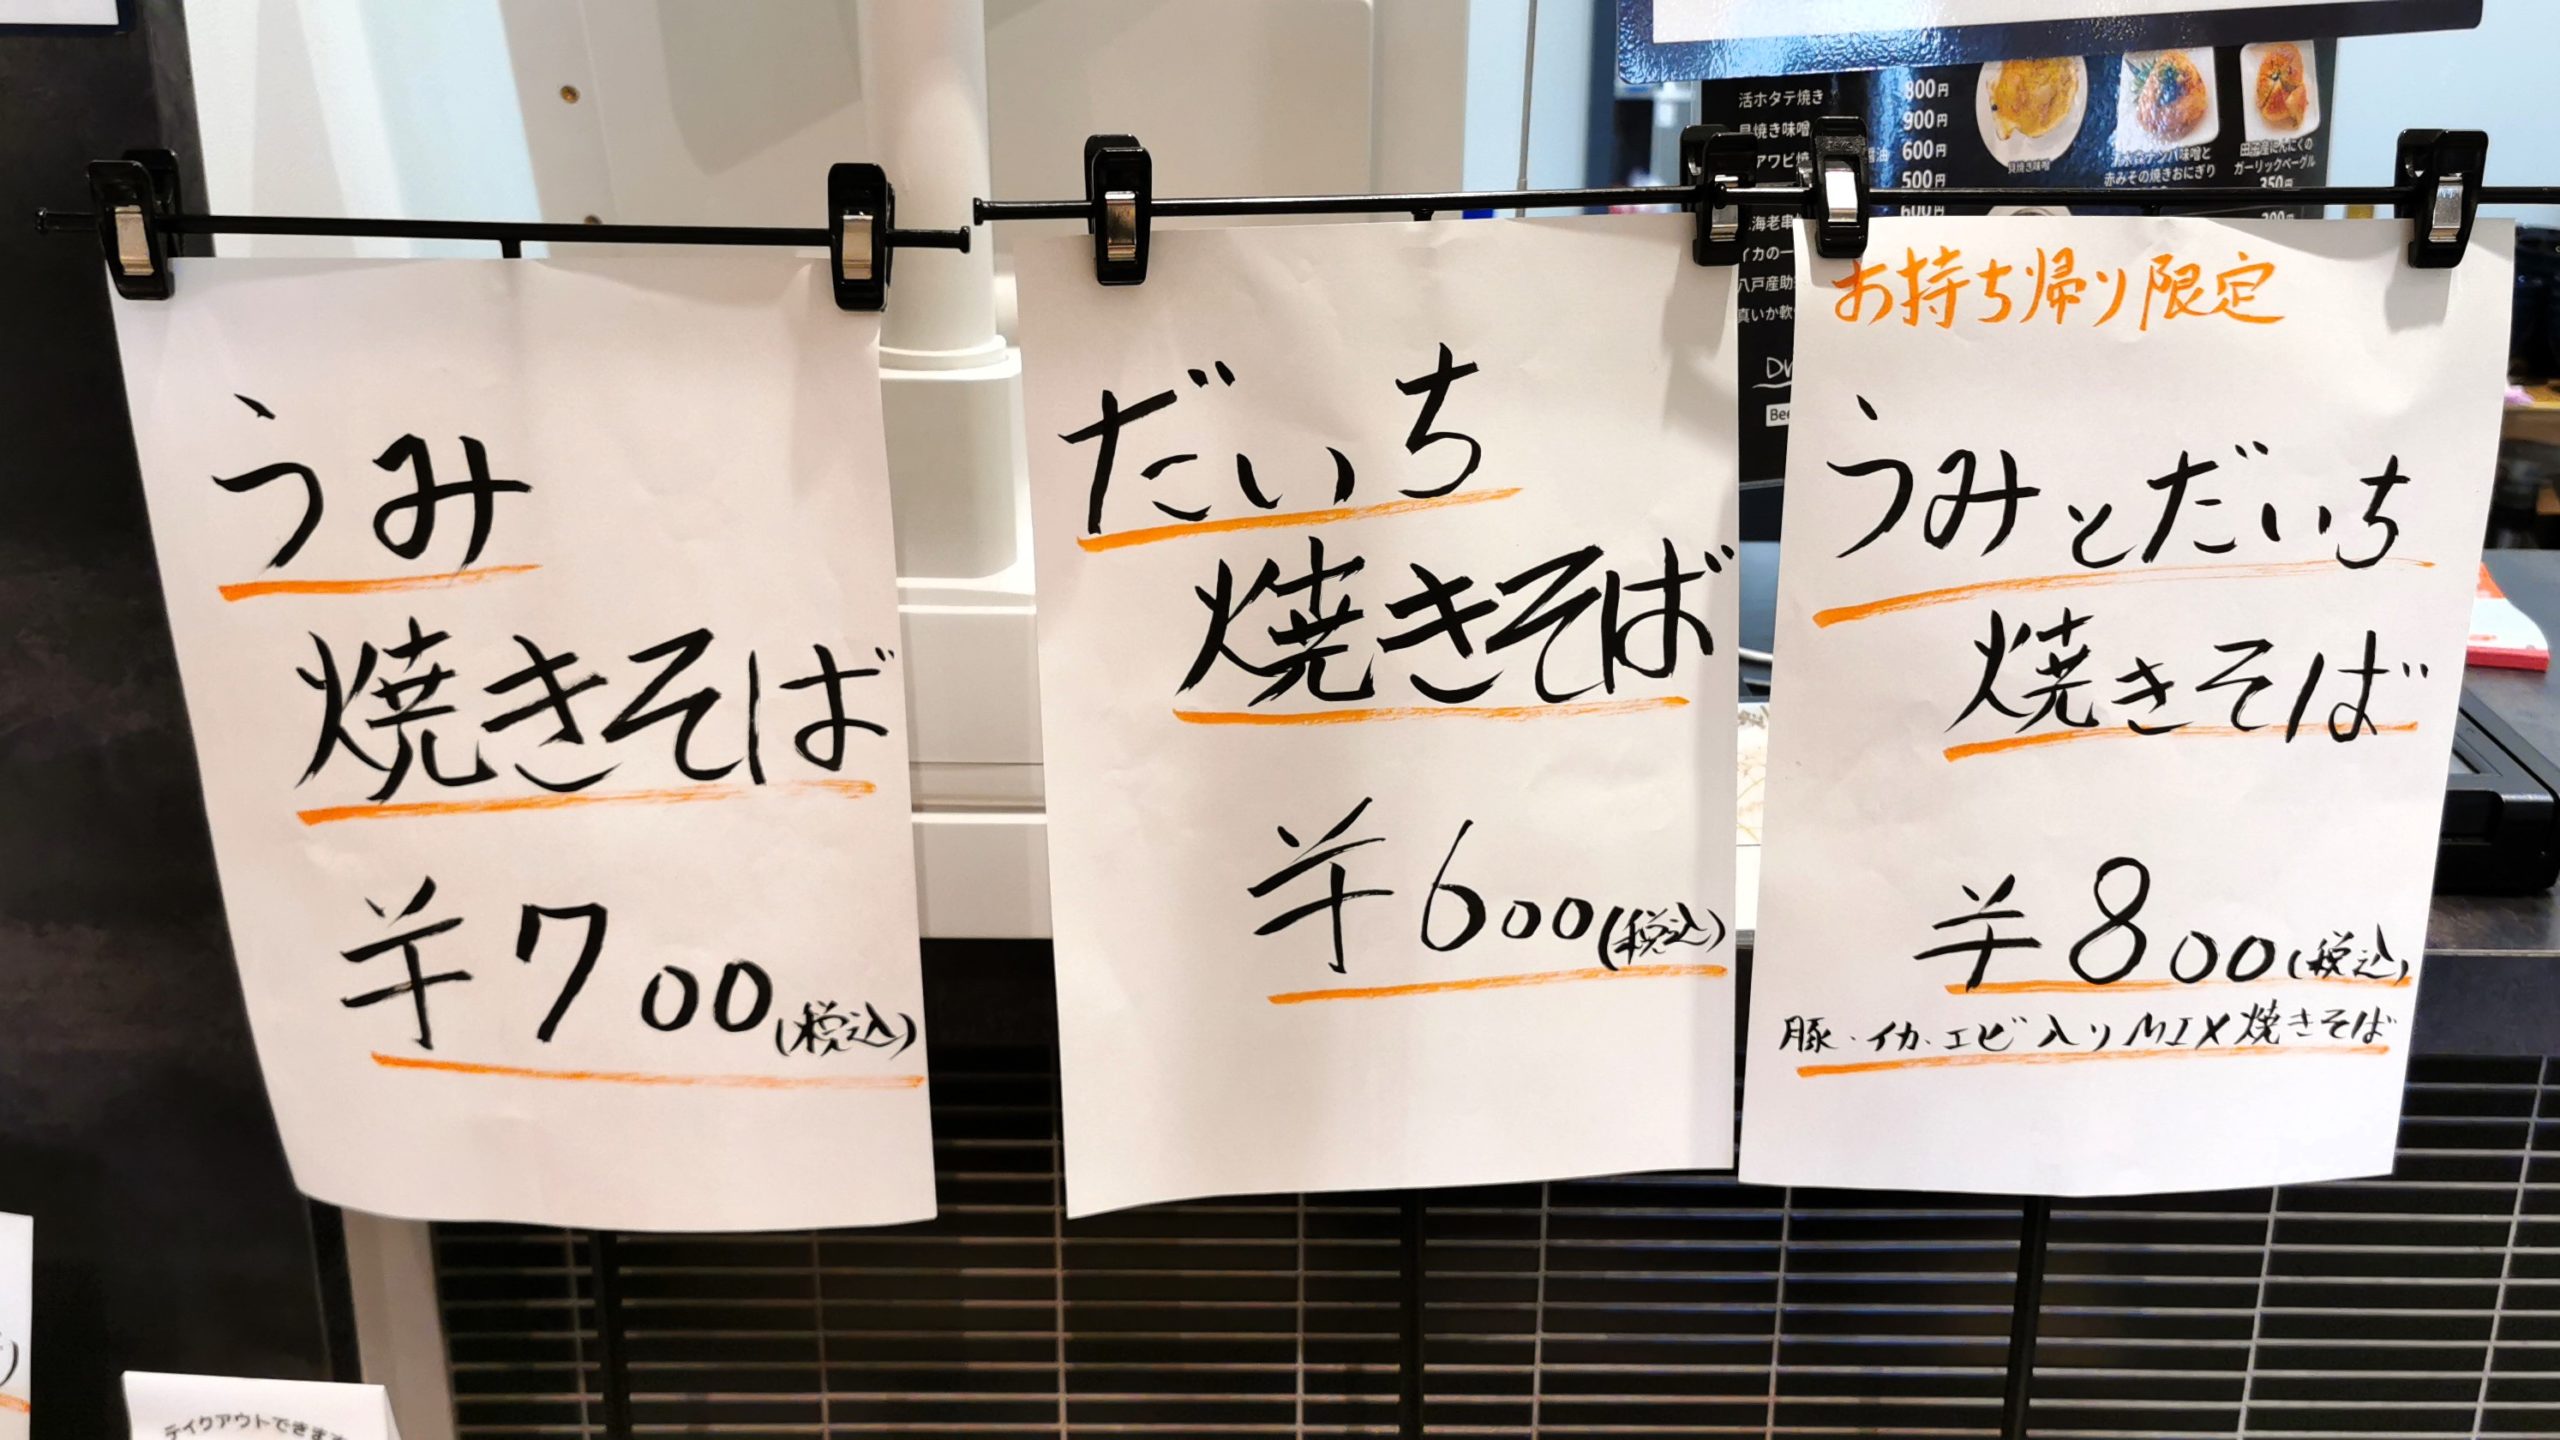 うみ
焼きそば
¥700(税込)
だいち
焼きそば
¥600(税込)
お持ち帰り限定
うみとだいち
焼きそば
¥800(税込)
豚・イカ・エビ入りMIX焼きそば
活ホタテ焼き 800円
貝焼き味噌 900円
アワビ焼 醤油 600円
500円
海老串 600円
イカの一
八戸産助
真いか軟
貝焼き味噌
味噌と
赤みその焼きおにぎり
田子産にんにくの
ガーリックベーグル
350円
テイクアウトできます